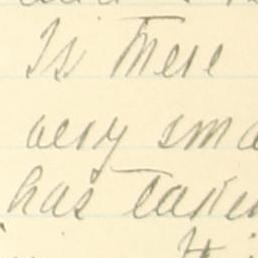 Is there
very sma
has taken